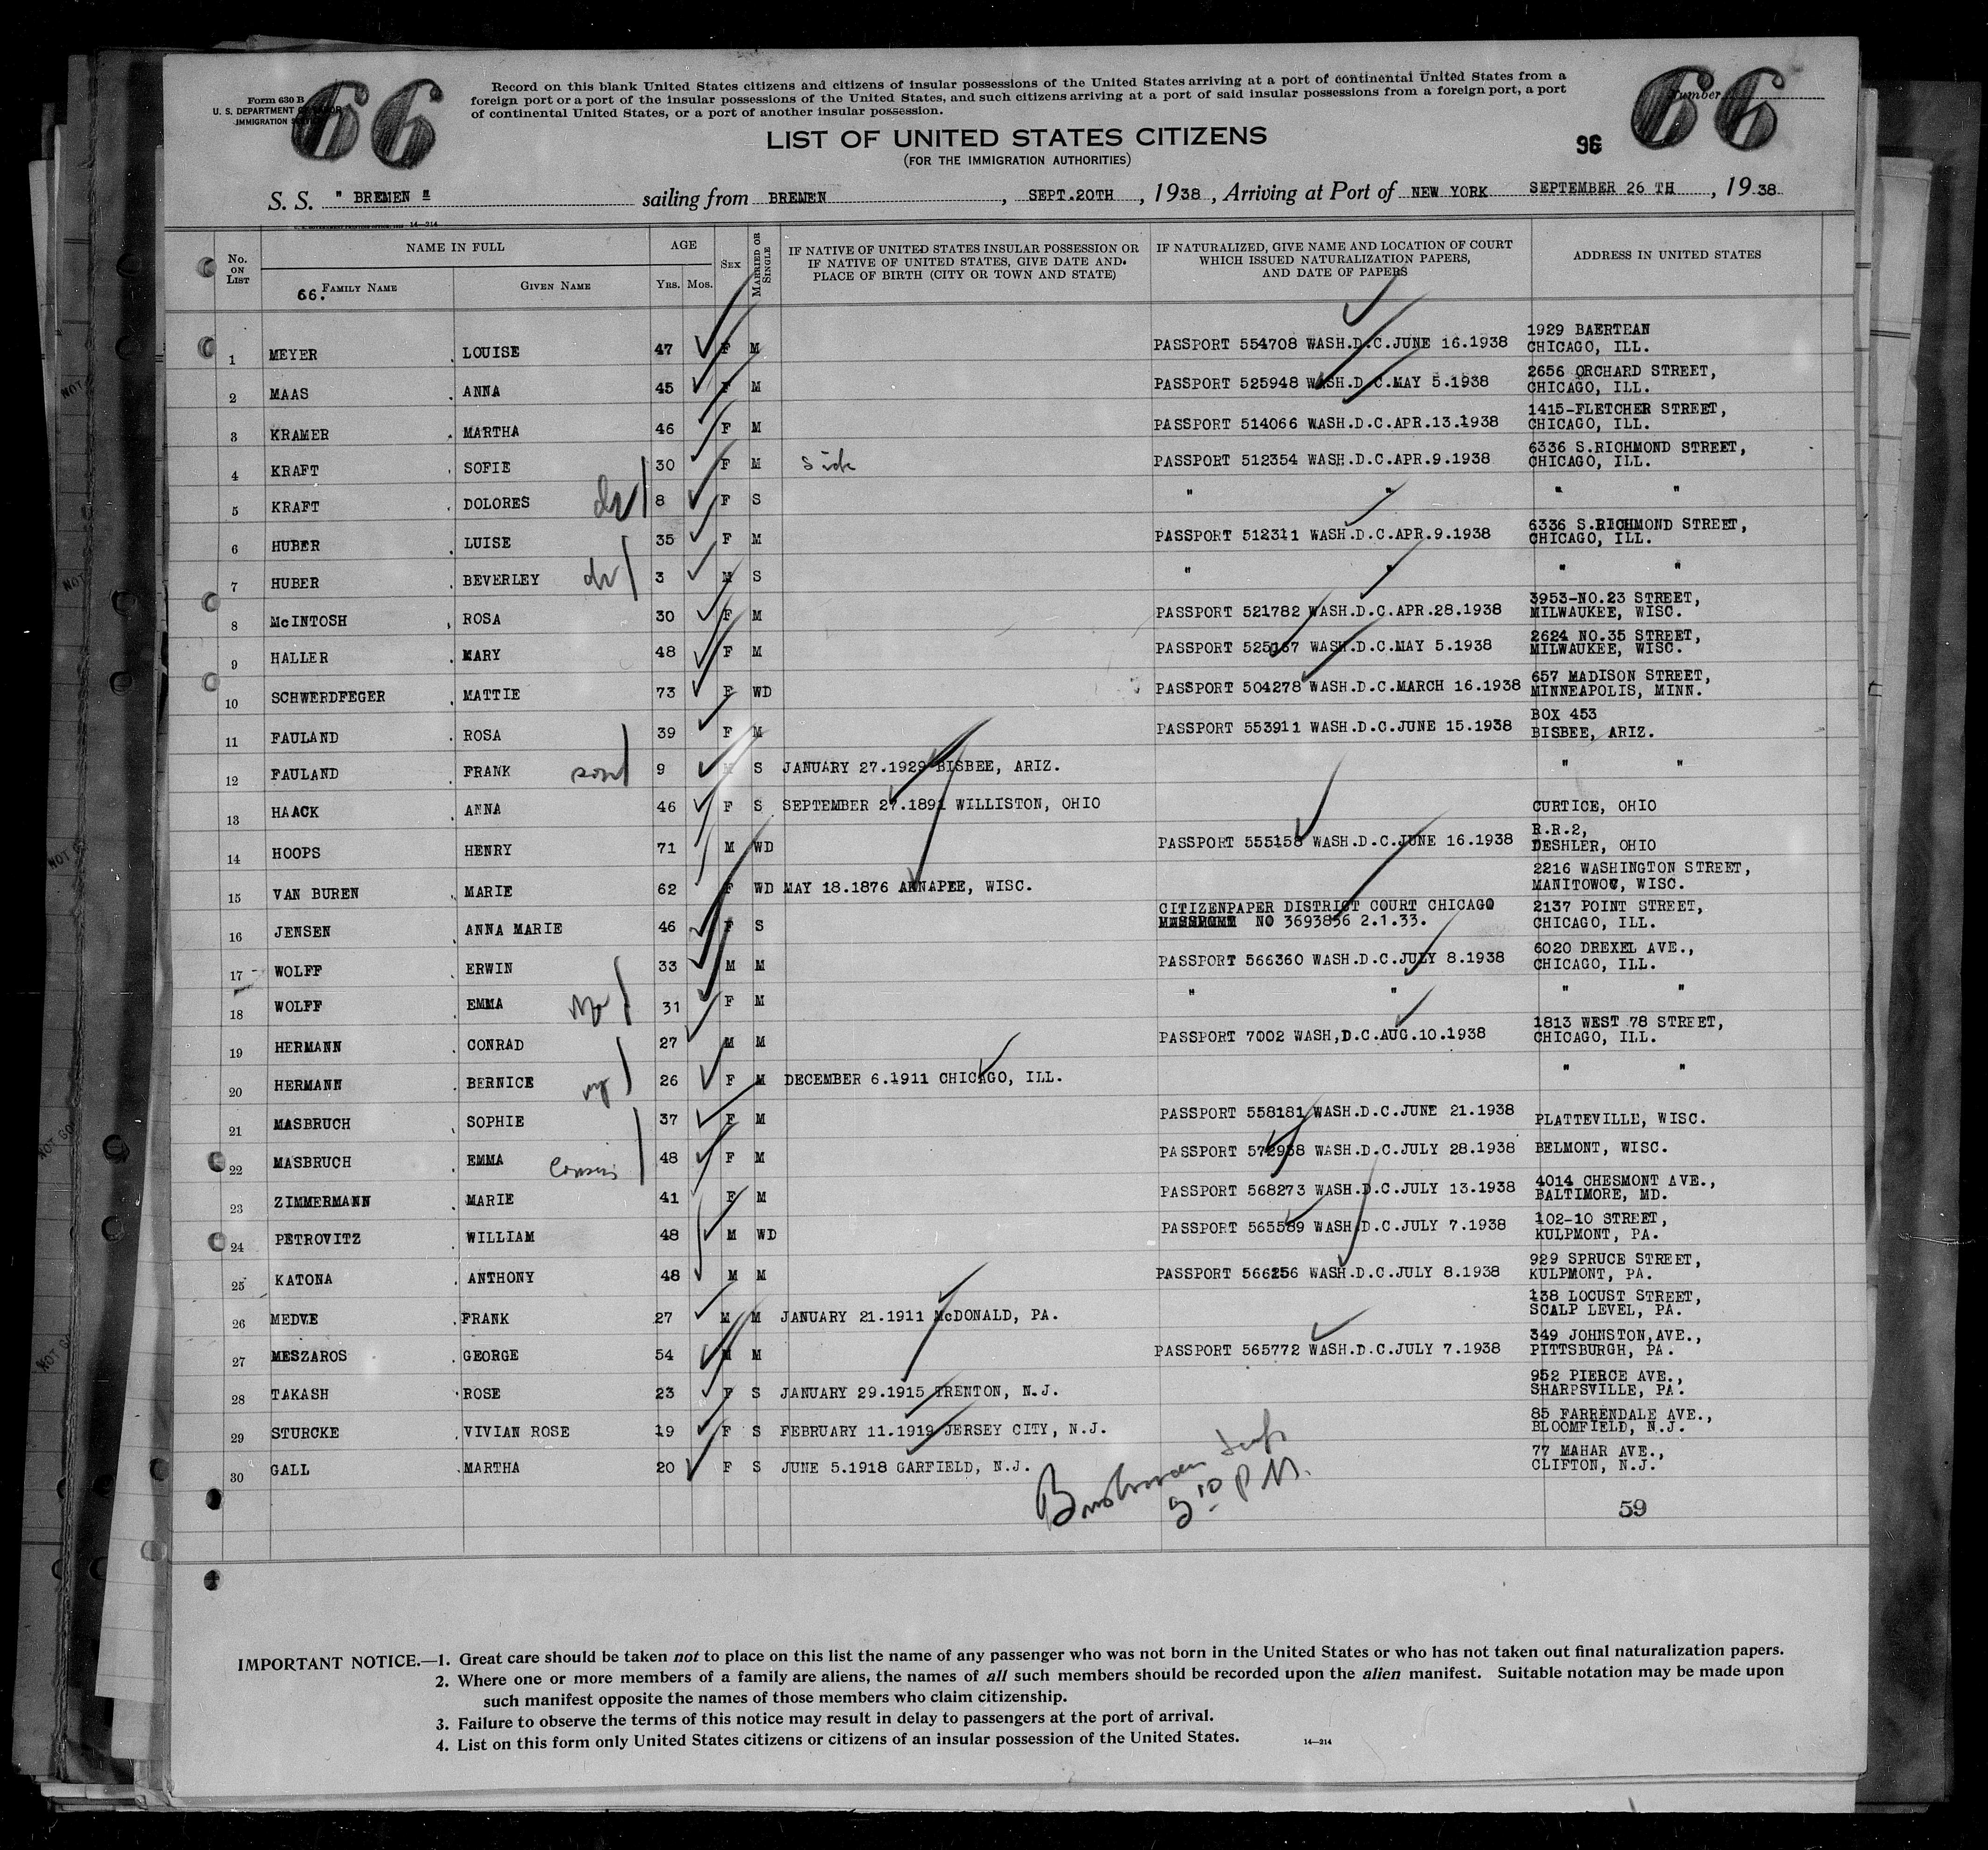 66 66
Form 630 B
U. S. DEPARTMENT OF LABOR
IMMIGRATION SERVICE
Record on this blank United States citizens and citizens of insular possessions of the United States arriving at a port of continental United States from a
foreign port or a port of the insular possessions of the United States, and such citizens arriving at a port of said insular possessions from a foreign port, a port
of continental United States, or a port of another insular possession.
Number
LIST OF UNITED STATES CITIZENS
(FOR THE IMMIGRATION AUTHORITIES)
96
S. S. " BREMEN " sailing from BREMEN , SEPT.20TH , 1938 , Arriving at Port of NEW YORK SEPTEMBER 26 TH , 1938
14—214
No. ON LIST NAME IN FULL AGE SEX MARRIED OR SINGLE IF NATIVE OF UNITED STATES INSULAR POSSESSION OR IF NATIVE OF UNITED STATES, GIVE DATE AND PLACE OF BIRTH (CITY OR TOWN AND STATE) IF NATURALIZED, GIVE NAME AND LOCATION OF COURT WHICH ISSUED NATURALIZATION PAPERS, AND DATE OF PAPERS ADDRESS IN UNITED STATES
66. FAMILY NAME GIVEN NAME YRS. MOS.
1 MEYER LOUISE 47 F M PASSPORT 554708 WASH.D.C.JUNE 16.1938 1929 BAERTEAN CHICAGO, ILL.
2 MAAS ANNA 45 F M PASSPORT 525948 WASH.D.C.MAY 5.1938 2656 ORCHARD STREET, CHICAGO, ILL.
3 KRAMER MARTHA 46 F M PASSPORT 514066 WASH.D.C.APR.13.1938 1415-FLETCHER STREET, CHICAGO, ILL.
4 KRAFT SOFIE 30 F M PASSPORT 512354 WASH.D.C.APR.9.1938 6336 S.RICHMOND STREET, CHICAGO, ILL.
5 KRAFT DOLORES 8 F S " " " "
6 HUBER LUISE 35 F M PASSPORT 512311 WASH.D.C.APR.9.1938 6336 S.RICHMOND STREET, CHICAGO, ILL.
7 HUBER BEVERLEY 3 M S " " " "
8 McINTOSH ROSA 30 F M PASSPORT 521782 WASH.D.C.APR.28.1938 3953-NO.23 STREET, MILWAUKEE, WISC.
9 HALLER MARY 48 F M PASSPORT 525167 WASH.D.C.MAY 5.1938 2624 NO.35 STREET, MILWAUKEE, WISC.
10 SCHWERDFEGER MATTIE 73 F WD PASSPORT 504278 WASH.D.C.MARCH 16.1938 657 MADISON STREET, MINNEAPOLIS, MINN.
11 FAULAND ROSA 39 F M PASSPORT 553911 WASH.D.C.JUNE 15.1938 BOX 453 BISBEE, ARIZ.
12 FAULAND FRANK son 9 M S JANUARY 27.1929 BISBEE, ARIZ. " "
13 HAACK ANNA 46 F S SEPTEMBER 27.1891 WILLISTON, OHIO CURTICE, OHIO
14 HOOPS HENRY 71 M WD PASSPORT 555158 WASH.D.C.JUNE 16.1938 R.R.2, DESHLER, OHIO
15 VAN BUREN MARIE 62 F WD MAY 18.1876 AHNAPEE, WISC. 2216 WASHINGTON STREET, MANITOWOC, WISC.
16 JENSEN ANNA MARIE 46 F S CITIZENPAPER DISTRICT COURT CHICAGO NO 3693856 2.1.33. 2137 POINT STREET, CHICAGO, ILL.
17 WOLFF ERWIN 33 M M PASSPORT 566360 WASH.D.C.JULY 8.1938 6020 DREXEL AVE., CHICAGO, ILL.
18 WOLFF EMMA 31 F M " " " "
19 HERMANN CONRAD 27 M M PASSPORT 7002 WASH,D.C.AUG.10.1938 1813 WEST 78 STREET, CHICAGO, ILL.
20 HERMANN BERNICE 26 F M DECEMBER 6.1911 CHICAGO, ILL. " "
21 MASBRUCH SOPHIE 37 F M PASSPORT 558181 WASH.D.C.JUNE 21.1938 PLATTEVILLE, WISC.
22 MASBRUCH EMMA 48 F M PASSPORT 572938 WASH.D.C.JULY 28.1938 BELMONT, WISC.
23 ZIMMERMANN MARIE 41 F M PASSPORT 568273 WASH.D.C.JULY 13.1938 4014 CHESMONT AVE., BALTIMORE, MD.
24 PETROVITZ WILLIAM 48 M WD PASSPORT 565589 WASH.D.C.JULY 7.1938 102-10 STREET, KULPMONT, PA.
25 KATONA ANTHONY 48 M M PASSPORT 566256 WASH.D.C.JULY 8.1938 929 SPRUCE STREET, KULPMONT, PA.
26 MEDVE FRANK 27 M M JANUARY 21.1911 McDONALD, PA. 138 LOCUST STREET, SCALP LEVEL, PA.
27 MESZAROS GEORGE 54 M M PASSPORT 565772 WASH.D.C.JULY 7.1938 349 JOHNSTON,AVE., PITTSBURGH, PA.
28 TAKASH ROSE 23 F S JANUARY 29.1915 TRENTON, N.J. 952 PIERCE AVE., SHARPSVILLE, PA.
29 STURCKE VIVIAN ROSE 19 F S FEBRUARY 11.1919 JERSEY CITY, N.J. 85 FARRENDALE AVE., BLOOMFIELD, N.J.
30 GALL MARTHA 20 F S JUNE 5.1918 GARFIELD, N.J. 77 MAHAR AVE., CLIFTON, N.J.
P.M.
59
IMPORTANT NOTICE.—1. Great care should be taken not to place on this list the name of any passenger who was not born in the United States or who has not taken out final naturalization papers.
2. Where one or more members of a family are aliens, the names of all such members should be recorded upon the alien manifest. Suitable notation may be made upon
such manifest opposite the names of those members who claim citizenship.
3. Failure to observe the terms of this notice may result in delay to passengers at the port of arrival.
4. List on this form only United States citizens or citizens of an insular possession of the United States. 14—214